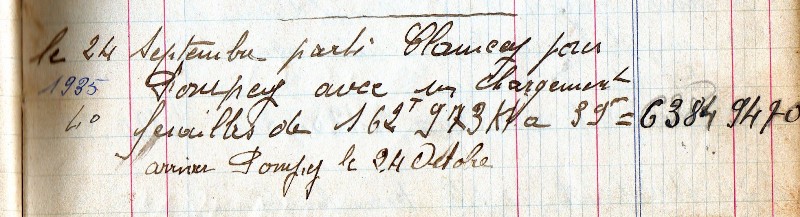 le 24 Septembre parti Clamecy pour
1935 Pompey avec un chargement
40 ferailles de 162T 973 K a 39F = 6384 9470
arriver Pompey le 24 Octobre